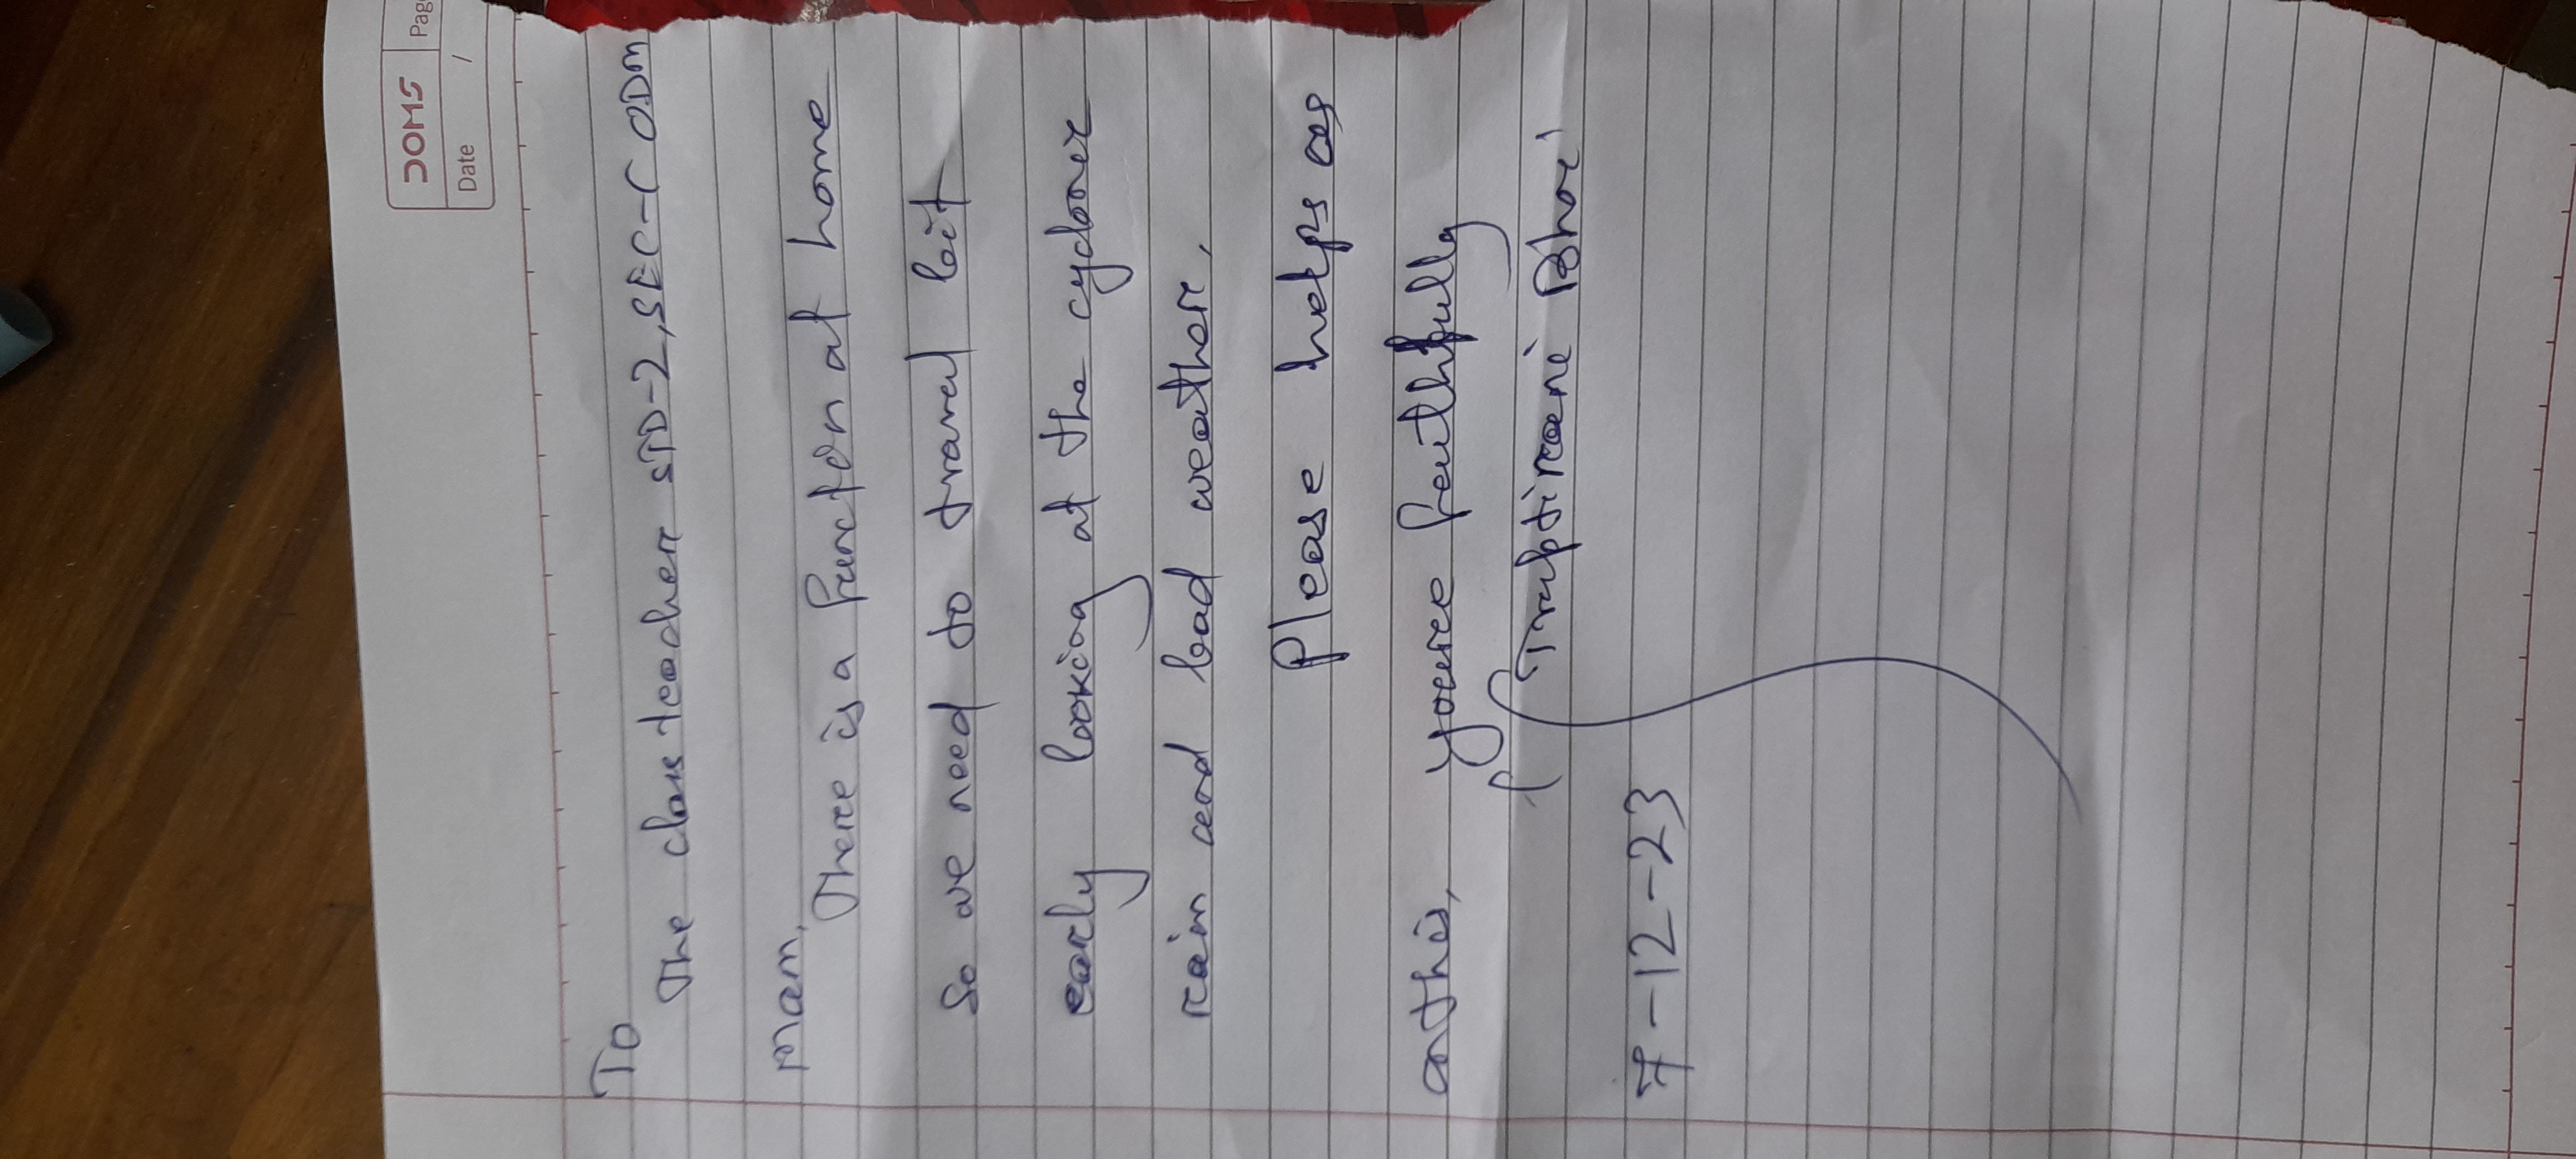 DOMS
Pag
Date /
To
The class teacher STD-2, SEC-C ODM
Mam,
There is a function at home
So we need to travel bit
early looking at the cyclone
rain and bad weather,
Please helps us
onthis, youre faithfully
Truptirani Bhoi
7-12-23